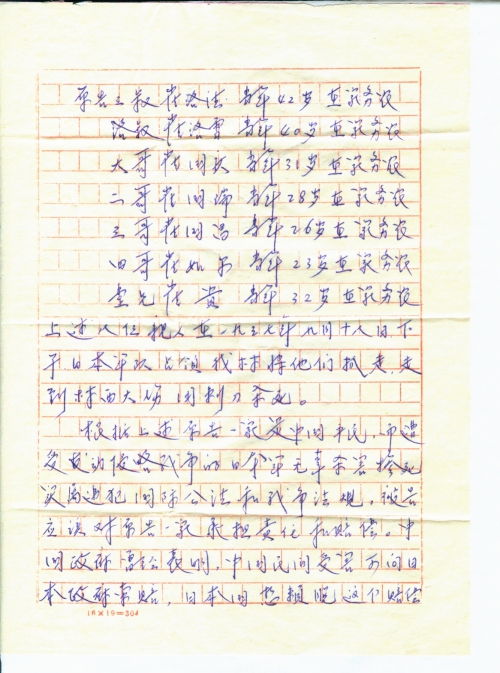 原告三叔崔洛法 当年42岁在家务农
洛叔崔洛雪 当年40岁在家务农
大哥崔同 当年31岁在家务农
二哥崔同 当年28岁在家务农
三哥崔同昌 当年26岁在家务农
四哥崔如 当年23岁在家务农
堂兄崔贵 当年32岁在家务农
上述人位 人在一九三七年九月十八日下
午日本军队占领我村将他们抓走,走
到村西大场用刺刀杀死。
根据上述原告一家是中国平民,而遭
受发动侵略战争的日军无辜杀害
属违犯国际公法和战争法规,被告
应该对原告一家承担责任和赔偿。中
国政府曾经表明,中国民间受害可向日
本政府索赔,日本国想赖脱这个赔偿
16×19=304